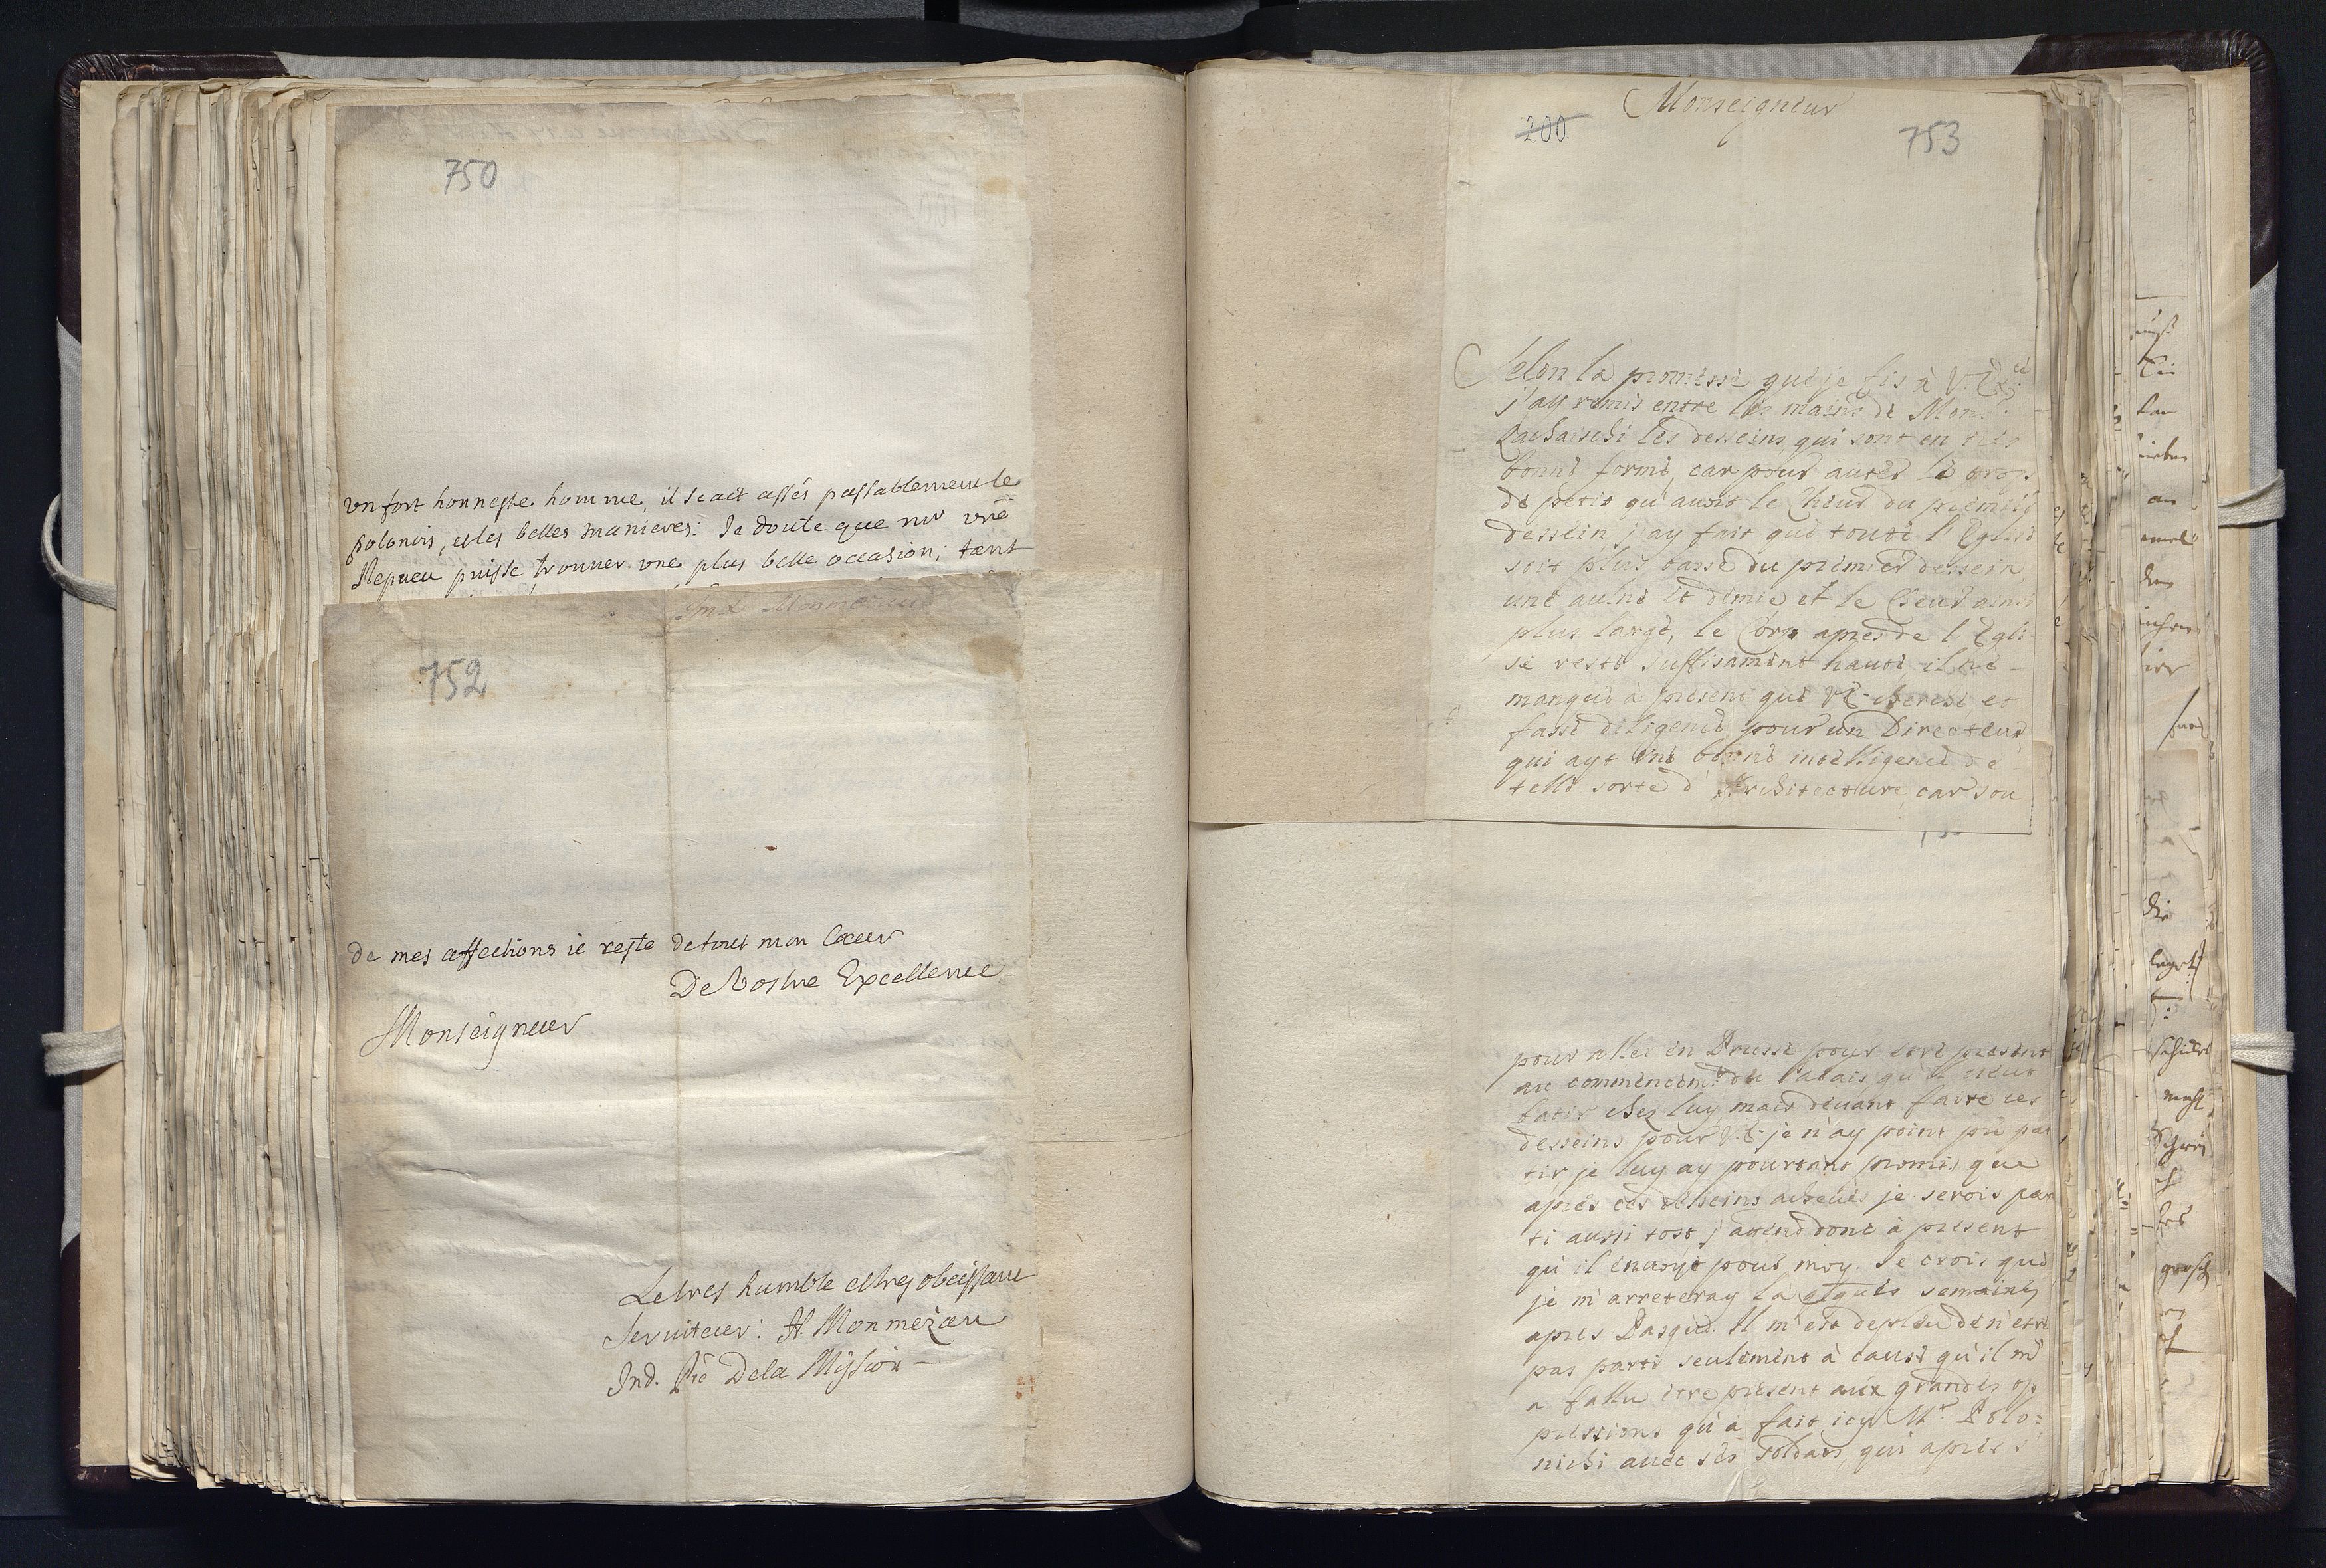 750
un fort honneste homme, il scait assés passablement le
polonois, et les belles manieres: Je doute que mr vre
Nepueu puisse trouuer une plus belle occasion; tant
752
de mes affections ie reste de tout mon Coeur
De Vostre Excellence
Monseigneur
Le tres humble et tres obeissant
Seruiteur: H. Monmejan
Ind. Pre De la Mission
Monseigneur
200.
753
Selon la promesse que je fis à V. Ex.ce
j'ay remis entre les mains de Mons.r
les desseins, qui sont en tres
bonne forme, car pour auter le trop
de petit qu'auoit le Cheur du premier
dessein j'ay fait que toute l'Eglise
soit plus basse du premier dessein
une aulne et demie et le Cheur ainsi
plus large, le Corp apres de l'Egli
se reste suffisament haute, il ne
manque à present que VE. cherche et
fasse diligence pour un Directeur
qui ayt une bonne intelligence de
telle sorte d'Architecture, car sou
pour aller en Prusse pour estre present
au commencem.t du Palais qu'il veut
batir chez luy mais deuant faire ces
desseins pour V.E. je n'ay point pû par
tir je luy ay pourtant promis que
apres ces desseins acheués je serois par
ti aussi tost j'attend donc à present
qu'il enuoye pour moy. Je crois que
je m'arreteray là qlques semaines
apres Pasque. Il m'est deplu de n'estre
pas parti seulement à cause qu'il m'
a fallu etre present aux grandes op
pressions qu'a fait icy Mr. Polo=
nichi auec ses soldats, qui apres